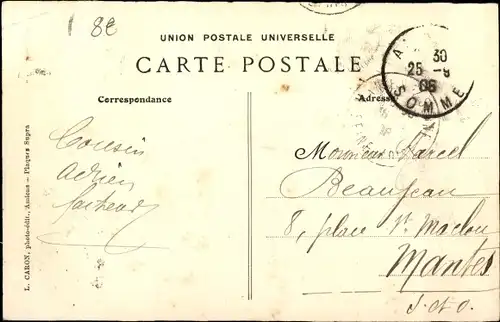 8€
UNION POSTALE UNIVERSELLE
CARTE POSTALE
Correspondance
Adresse
A
30
25 - 9
06
SOMME
Cousin
Adrien
L. CARON, photo-édit., Amiens — Plaques Supra
Monsieur Marcel
Beaujean
8, place St Maclou
Mantes
S. et O.